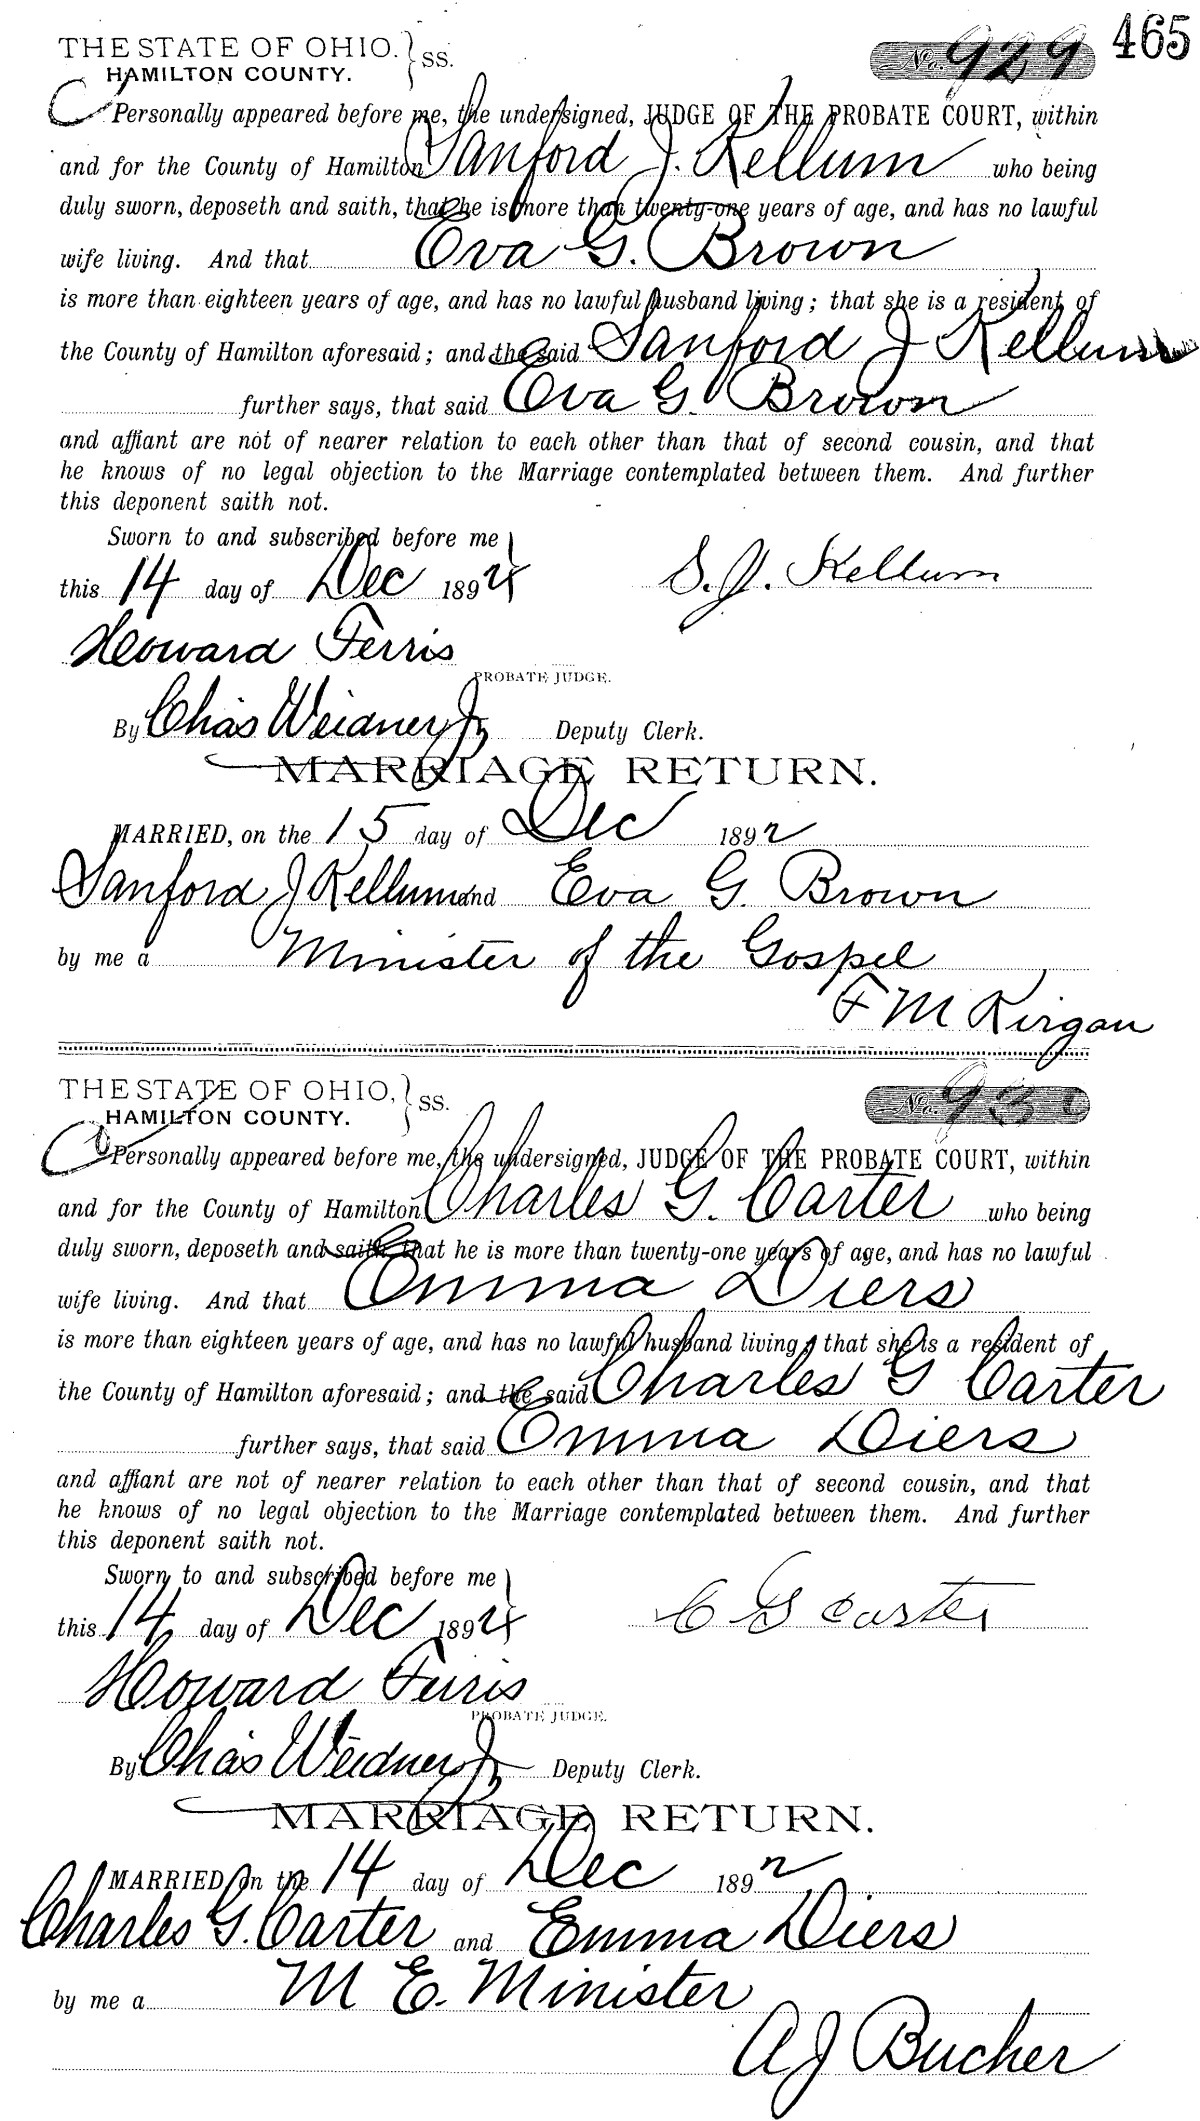 465
THE STATE OF OHIO. } SS. No. 929
HAMILTON COUNTY.
Personally appeared before me, the undersigned, JUDGE OF THE PROBATE COURT, within
and for the County of Hamilton Sanford J. Kellum who being
duly sworn, deposeth and saith, that he is more than twenty-one years of age, and has no lawful
wife living. And that Eva G. Brown
is more than eighteen years of age, and has no lawful husband living; that she is a resident of
the County of Hamilton aforesaid; and the said Sanford J Kellum
further says, that said Eva G. Brown
and affiant are not of nearer relation to each other than that of second cousin, and that
he knows of no legal objection to the Marriage contemplated between them. And further
this deponent saith not.
Sworn to and subscribed before me
this 14 day of Dec 1892 S. J. Kellum
Howard Ferris
PROBATE JUDGE.
By Chas Weidner Jr Deputy Clerk.
MARRIAGE RETURN.
MARRIED, on the 15 day of Dec 1892
Sanford J Kellum and Eva G. Brown
by me a Minister of the Gospel
F M Kirgan
THE STATE OF OHIO, } SS. No. 930
HAMILTON COUNTY.
Personally appeared before me, the undersigned, JUDGE OF THE PROBATE COURT, within
and for the County of Hamilton Charles G. Carter who being
duly sworn, deposeth and saith, that he is more than twenty-one years of age, and has no lawful
wife living. And that Emma Diers
is more than eighteen years of age, and has no lawful husband living; that she is a resident of
the County of Hamilton aforesaid; and the said Charles G Carter
further says, that said Emma Diers
and affiant are not of nearer relation to each other than that of second cousin, and that
he knows of no legal objection to the Marriage contemplated between them. And further
this deponent saith not.
Sworn to and subscribed before me
this 14 day of Dec 1892 C G Carter
Howard Ferris
PROBATE JUDGE.
By Chas Weidner Jr Deputy Clerk.
MARRIAGE RETURN.
MARRIED, on the 14 day of Dec 1892
Charles G. Carter and Emma Diers
by me a M E. Minister
A J Bucher